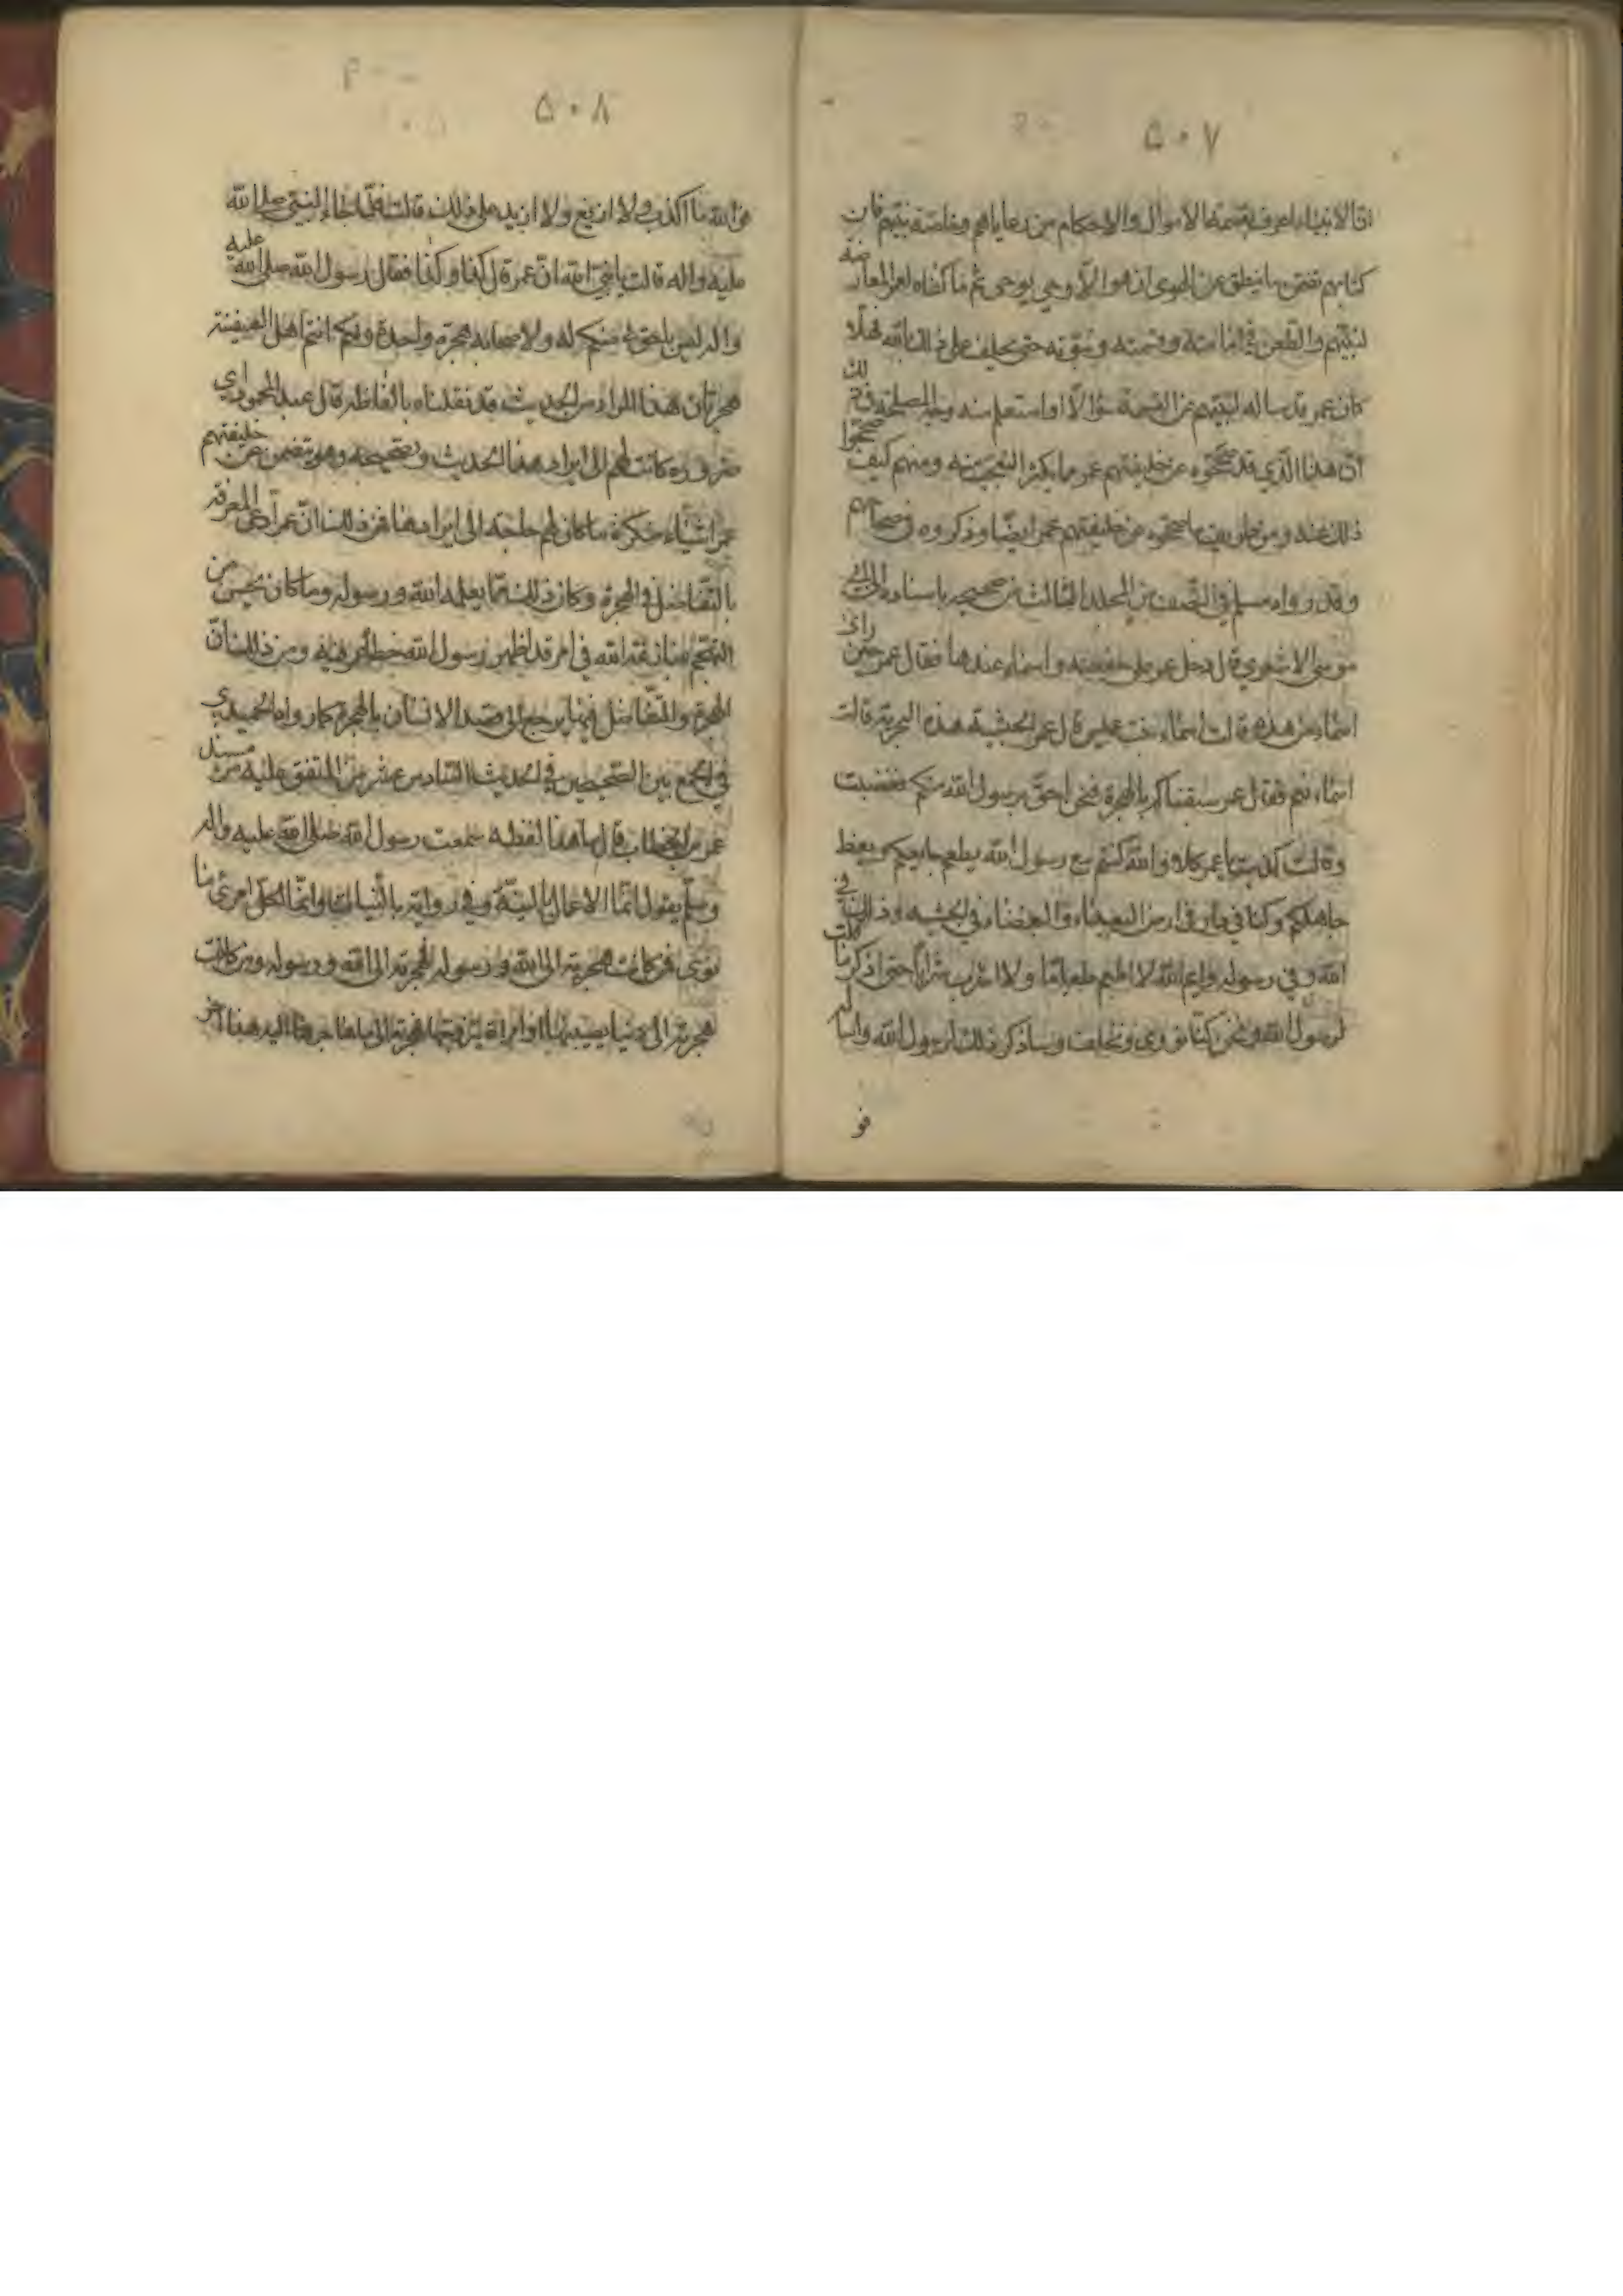 ۵۰۷
ان الانبياء اعرف بقسمة الاموال والاحكام من رعاياهم وخاصة نبيهم فان
كتابهم تضمن ما ينطق عن الهوى ان هو الا وحي يوحى ثم ما كفاه لعمر المعارضة
لنبيهم والطعن في امانته وقسمته ونبوته حتى يحلف على ذلك بالله فهلا
كان عمر قد سال نبيهم عن القسمة سؤالا او استعلم منه وجه المصلحة في ذلك
ان هذا الذي قد صححوه عن خليفتهم عمر مما يكثر التعجب منه ومنهم كيف صححوا
ذلك عنه ومن طريف ما صححوه عن خليفتهم عمر ايضا وذكروه في صحاحهم
وقد رواه مسلم في النصف من المجلد الثالث من صحيحه باسناده الى ابي
موسى الاشعري قال دخل عمر على حفصة واسماء عندها فقال عمر حين راى
اسماء من هذه قالت اسماء بنت عميس قال عمر الحبشية هذه البحرية قالت
اسماء نعم فقال عمر سبقناكم بالهجرة فنحن احق برسول الله منكم فغضبت
وقالت كذبت يا عمر كلا والله كنتم مع رسول الله يطعم جايعكم ويعظ
جاهلكم وكنا في دار او في ارض البعداء والبغضاء في الحبشه وذلك في
الله وفي رسوله وايم الله لا اطعم طعاما ولا اشرب شرابا حتى اذكر ما قلت
لرسول الله ونحن كنا نوذى ونخاف وساذكر ذلك لرسول الله واساله
فو
۵۰۸
فوالله ما اكذب ولا ازيغ ولا ازيد على ذلك قالت فلما جاء النبي صلى الله
عليه واله قالت يا نبي الله ان عمر قال كذا وكذا فقال رسول الله صلى الله عليه
واله ليس باحق بي منكم له ولاصحابه هجرة واحدة ولكم انتم اهل السفينة
هجرتان هذا المراد من الحديث قد نقلناه بالفاظه قال عبد المحمود اي
ضرورة كانت لهم الى ايراد هذا الحديث وتصحيحه وهو يتضمن عن خليفتهم
عمر اشياء منكرة ما كان لهم حاجة الى ايرادها فمن ذلك ان عمر ادعى المعرفة
بالتفاضل في الهجرة وكان ذلك مما يعلمه الله ورسوله وما كان يحسن من
التهجم منازعة الله في امر قد اظهر رسول الله خطأ عمر فيه ومن ذلك ان
الهجرة والتفاضل فيها يرجع الى قصد الانسان بالهجرة كما رواه الحميدي
في الجمع بين الصحيحين في الحديث السادس عشر من المتفق عليه من مسند
عمر بن الخطاب قال ما هذا لفظه سمعت رسول الله صلى الله عليه واله
وسلم يقول انما الاعمال بالنية وفي رواية بالنيات وانما لكل امرئ ما
نوى فمن كانت هجرته الى الله ورسوله فهجرته الى الله ورسوله ومن كانت
هجرته الى دنيا يصيبها او امراة يتزوجها فهجرته الى ما هاجر اليه هذا اخر